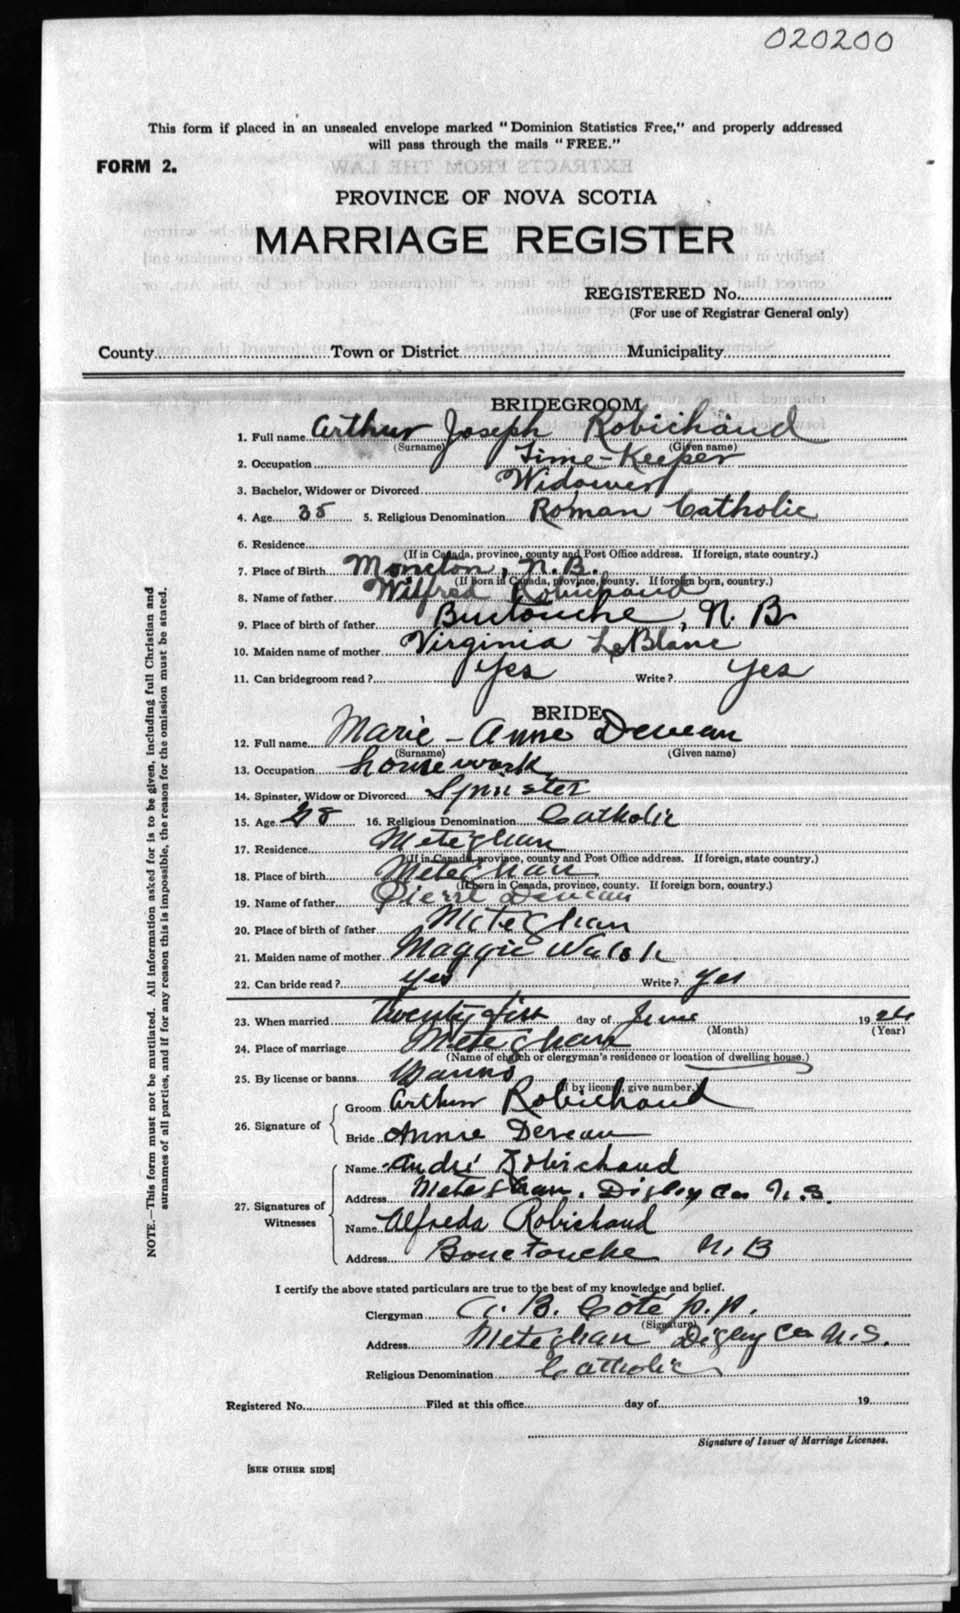 020200
This form if placed in an unsealed envelope marked "Dominion Statistics Free," and properly addressed
will pass through the mails "FREE."
FORM 2.
PROVINCE OF NOVA SCOTIA
MARRIAGE REGISTER
REGISTERED No.
(For use of Registrar General only)
County Town or District Municipality
BRIDEGROOM
1. Full name Arthur Joseph Robichaud
(Surname) (Given name)
2. Occupation Time-Keeper
3. Bachelor, Widower or Divorced Widower
4. Age 35 5. Religious Denomination Roman Catholic
6. Residence
(If in Canada, province, county and Post Office address. If foreign, state country.)
7. Place of Birth Moncton, N.B.
(If born in Canada, province, county. If foreign born, country.)
8. Name of father Wilfred Robichaud
9. Place of birth of father Buctouche, N. B.
10. Maiden name of mother Virginia LeBlanc
11. Can bridegroom read? Yes Write? Yes
BRIDE
12. Full name Marie-Anne Deveau
(Surname) (Given name)
13. Occupation housework
14. Spinster, Widow or Divorced Spinster
15. Age 28 16. Religious Denomination Catholic
17. Residence Meteghan
(If in Canada, province, county and Post Office address. If foreign, state country.)
18. Place of birth Meteghan
(If born in Canada, province, county. If foreign born, country.)
19. Name of father Pierre Deveau
20. Place of birth of father Meteghan
21. Maiden name of mother Maggie Walsh
22. Can bride read? yes Write? yes
23. When married twenty first day of June 19
(Month) (Year)
24. Place of marriage Meteghan
(Name of church or clergyman's residence or location of dwelling house.)
25. By license or banns Banns
(If by license, give number.)
26. Signature of
Groom Arthur Robichaud
Bride Annie Deveau
27. Signatures of Witnesses
Name André Robichaud
Address Meteghan, Digby Co N.S.
Name Alfreda Robichaud
Address Bouctouche N.B
I certify the above stated particulars are true to the best of my knowledge and belief.
Clergyman A. B. Côté p.p.
(Signature)
Address Meteghan Digby Co N.S.
Religious Denomination Catholic
Registered No. Filed at this office day of 19
Signature of Issuer of Marriage Licenses.
[SEE OTHER SIDE]
NOTE.—This form must not be mutilated. All information asked for is to be given, including full Christian and
surnames of all parties, and if for any reason this is impossible, the reason for the omission must be stated.